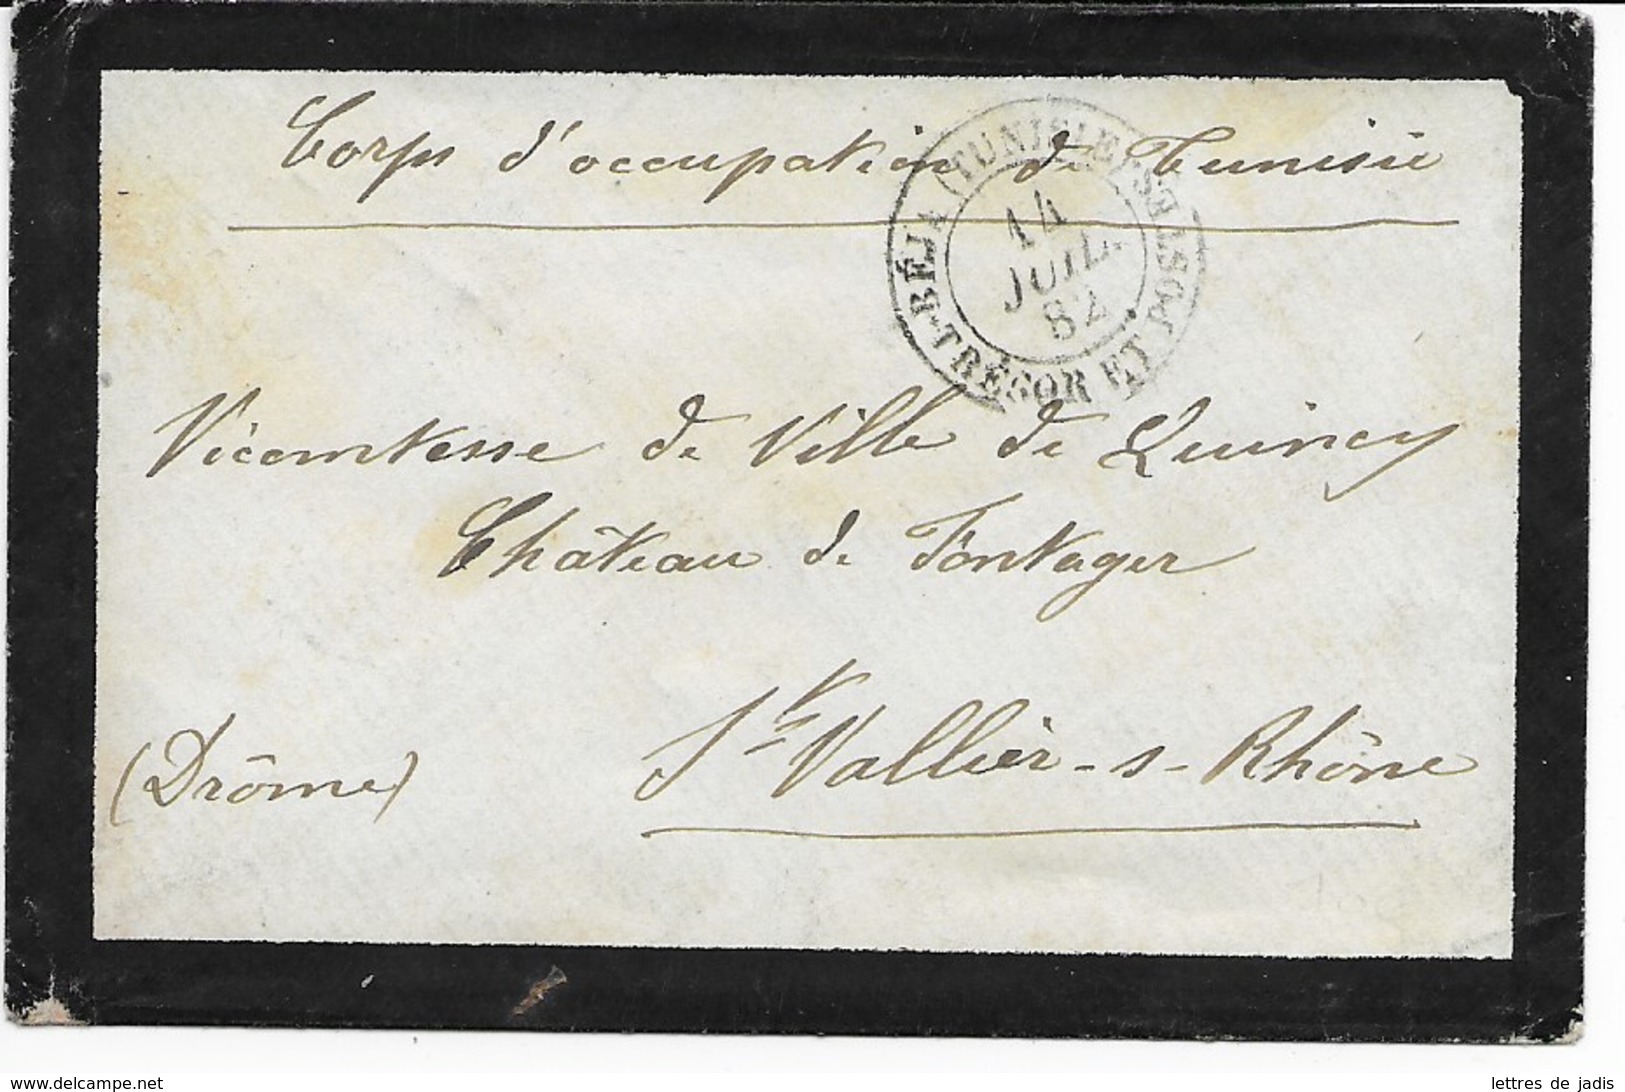 Corps d'occupation de Tunisie
BÉJA (TUNISIE)
TRÉSOR ET POSTES
14
JUIL.
82
Vicomtesse de Ville de Quincy
Château de Fontager
St Vallier-s-Rhône
(Drôme)
www.delcampe.net
lettres de jadis